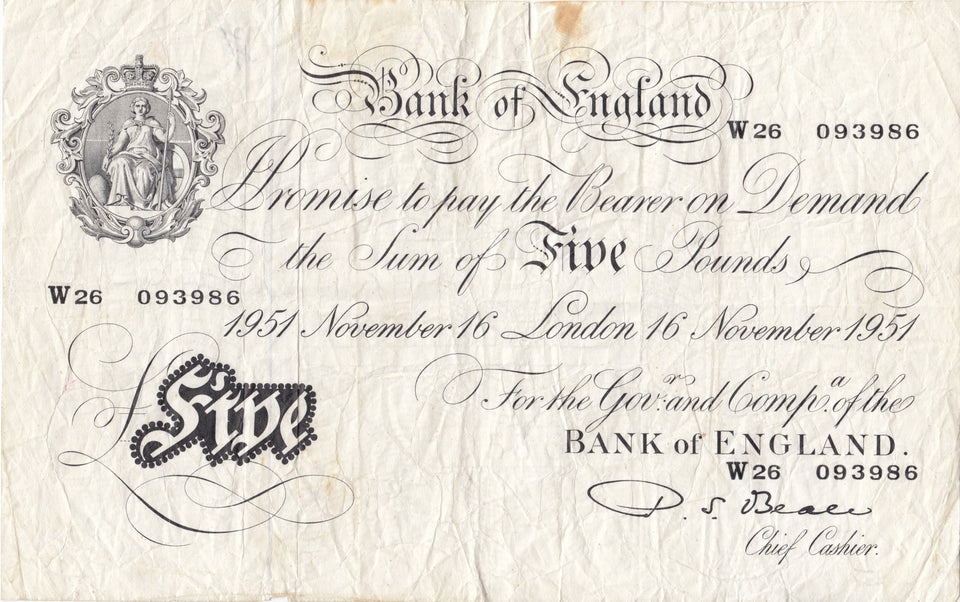 Bank of England
W26 093986
I Promise to pay the Bearer on Demand
the Sum of Five Pounds
W26 093986
1951 November 16 London 16 November 1951
£Five
For the Govr. and Compa. of the
BANK of ENGLAND.
W26 093986
P. S. Beale
Chief Cashier.